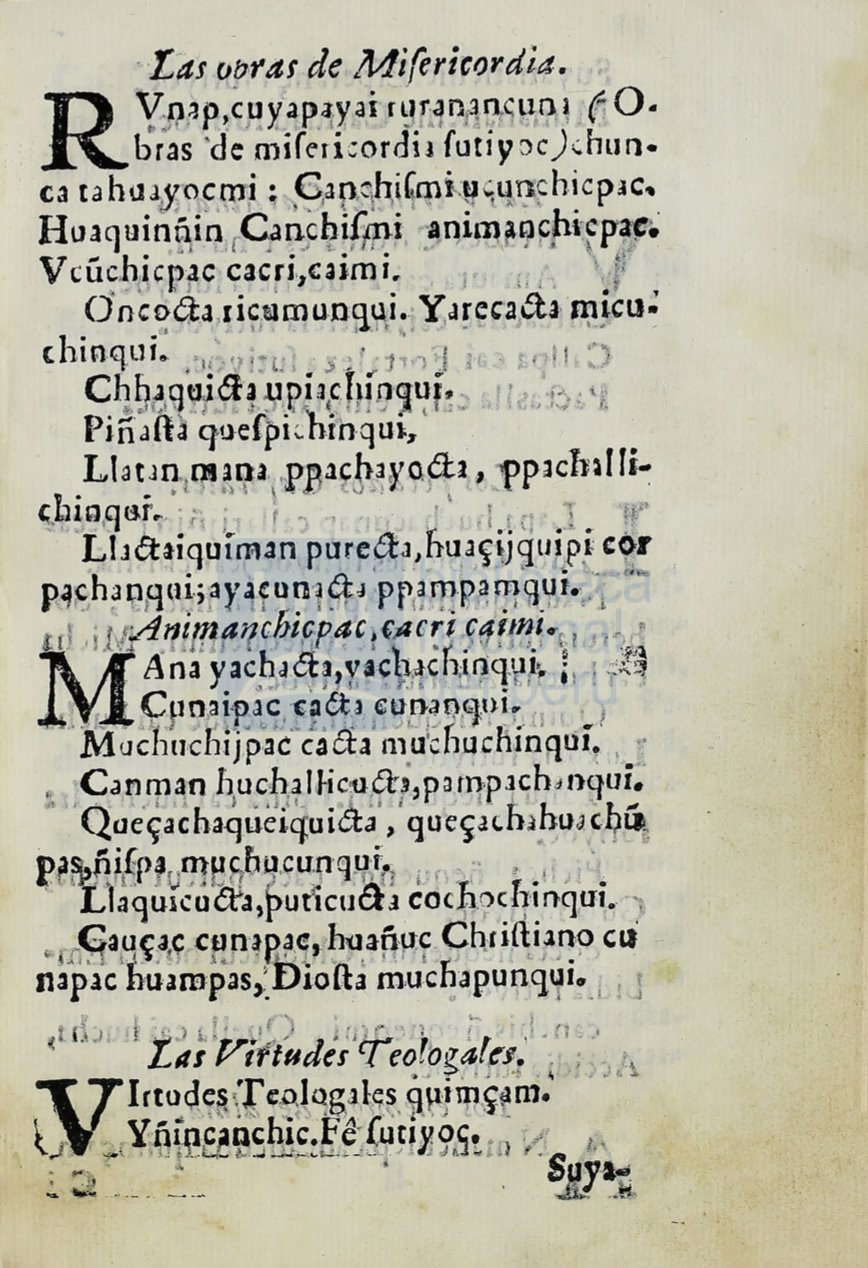 Las obras de Miſericordia.
RVnap,cuyapayai ruranancuna (O-
bras de miſericordia ſutiyoc)chun-
ca tahuayocmi : Canchiſmi ucunchicpac.
Huaquinñin Canchiſmi animanchicpac.
Vcũchicpac cacri,caimi.
Oncocta ricumunqui. Yarecacta micu-
chinqui.
Chhaquicta upiachinqui.
Piñaſta queſpichinqui,
Llatan mana ppachayocta, ppachalli-
chinqui.
Llactaiquiman purecta,huaçijquipi cor
pachanqui;ayacunacta ppampamqui.
Animanchicpac,cacri caimi.
MAna yachacta,yachachinqui.
Cunaipac cacta cunanqui.
Muchuchijpac cacta muchuchinqui.
Canman huchallicucta,pampachanqui.
Queçachaqueiquicta , queçachahuachũ
pas,ñiſpa muchucunqui.
Llaquicucta,puticucta cochochinqui.
Cauçac cunapac, huañuc Chriſtiano cu
napac huampas, Dioſta muchapunqui.
Las Virtudes Teologales.
VIrtudes Teologales quimçam.
Yñincanchic.Fê ſutiyoc.
Suya-